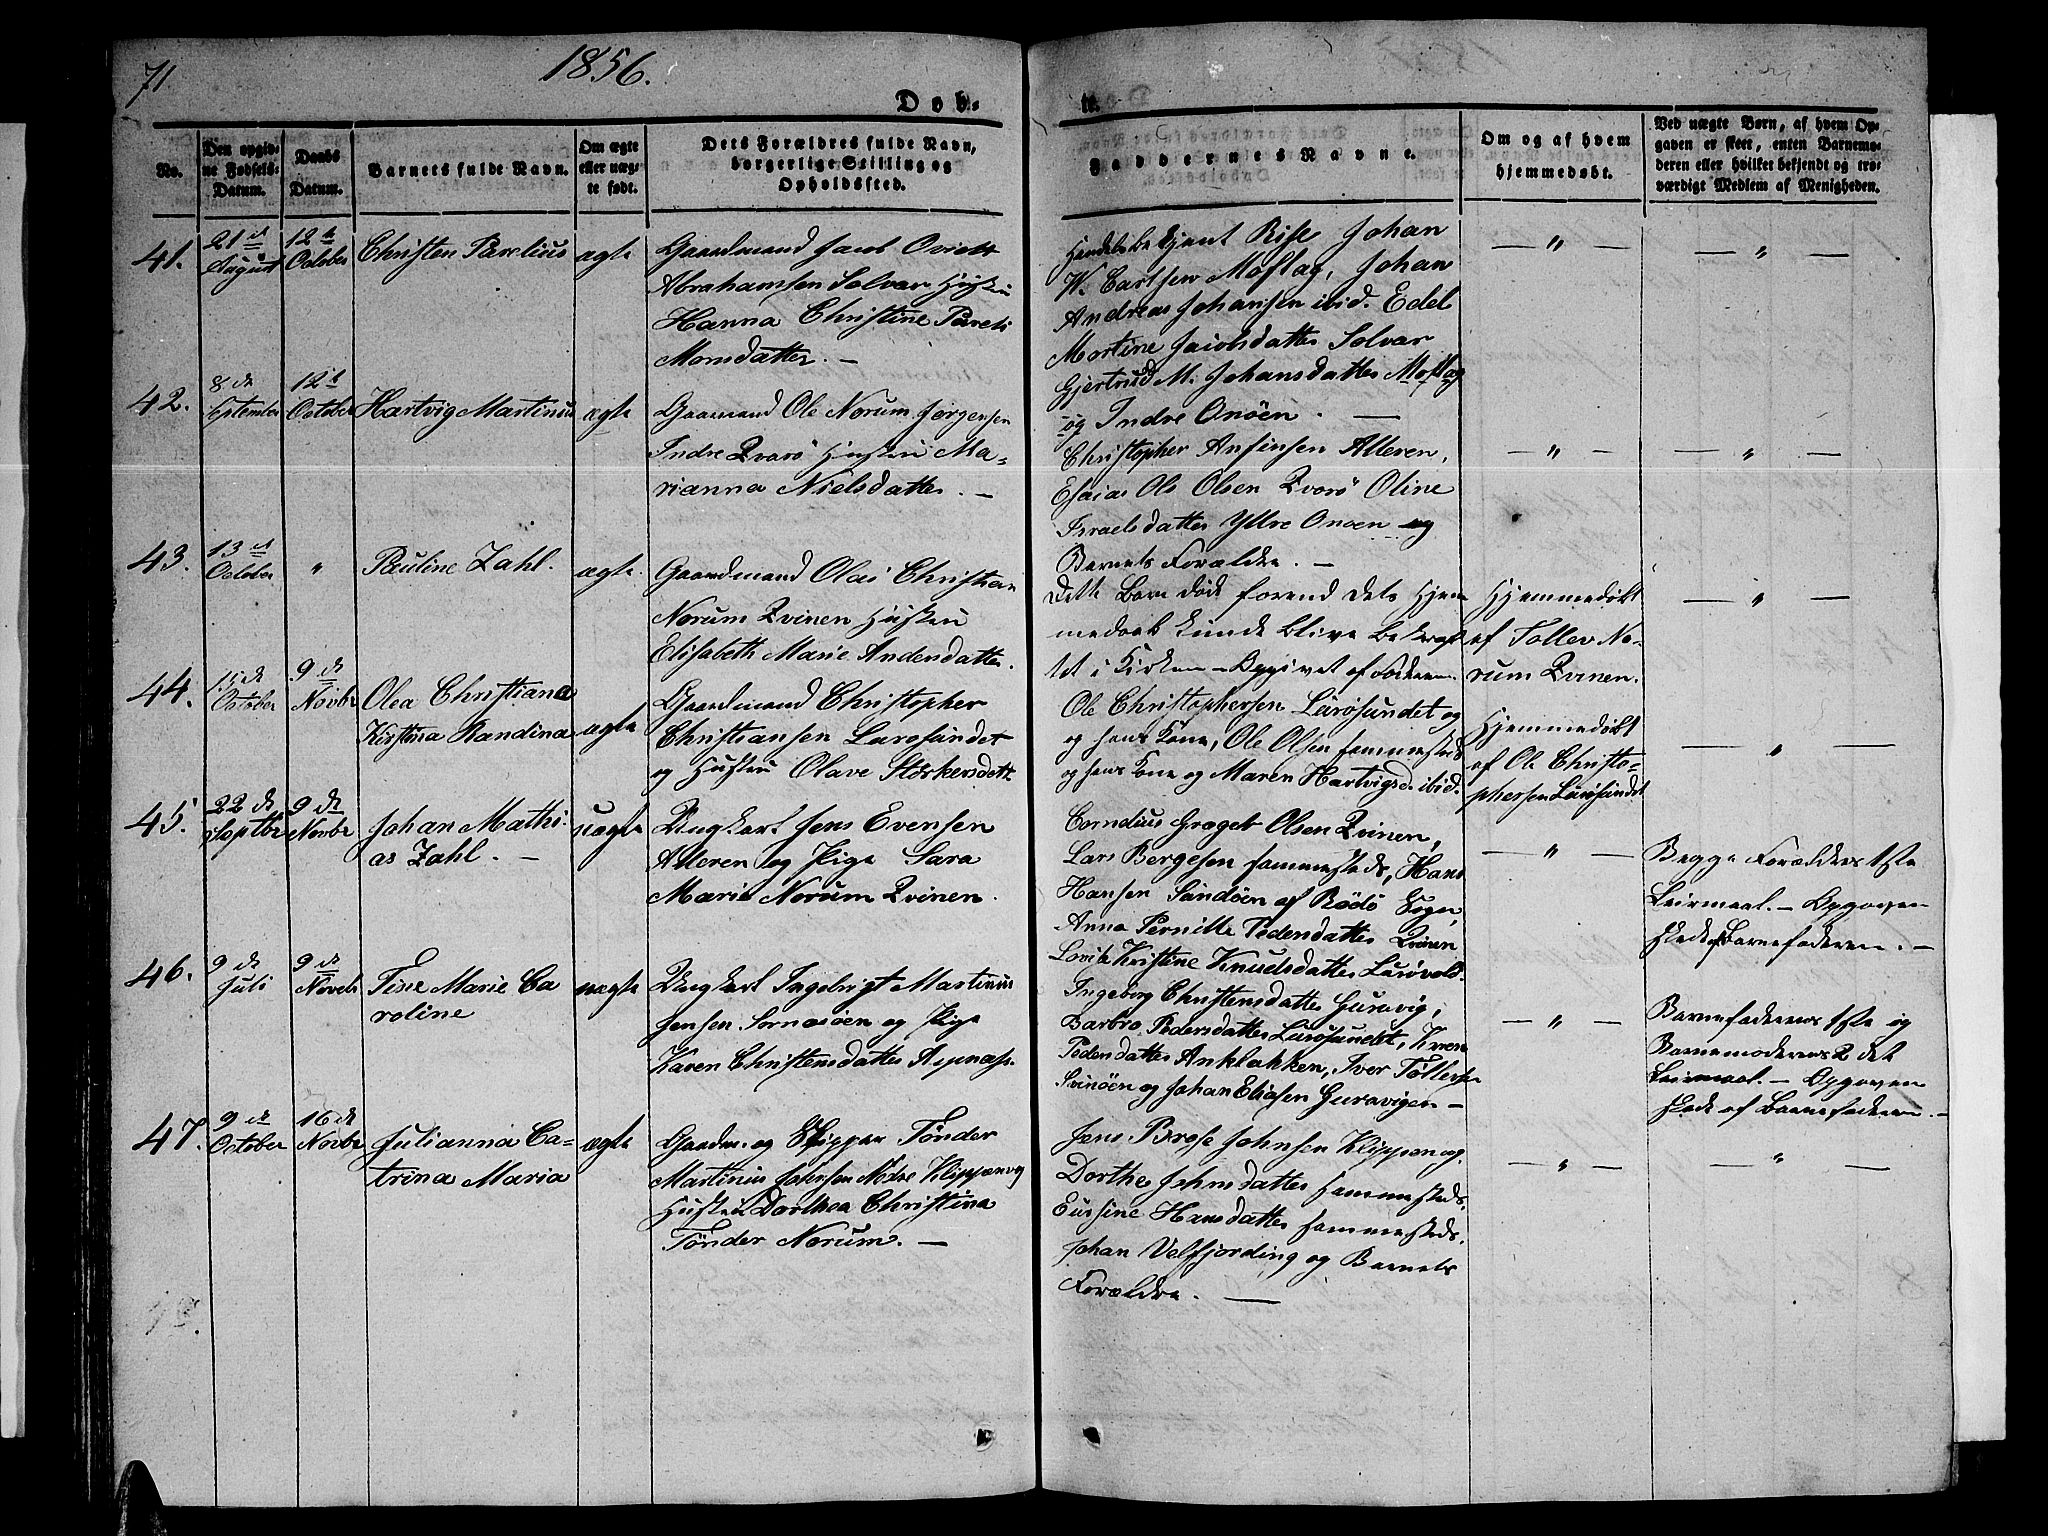 71.
1856.
Døb-
te.
No.
Den opgiv-
ne Fødsels-
Datum.
Daabs
Datum.
Barnets fulde Navn.
Om ægte
eller uæg-
te født.
Dets Forældres fulde Navn,
borgerlige Stilling og
Opholdssted.
Faddernes Navne.
Om og af hvem
hjemmedøbt.
Ved uægte Børn, af hvem Op-
gaven er skeet, enten Barnemo-
deren eller hvilket bekjendt og tro-
værdigt Medlem af Menigheden.
41.
21
August
12
October
Christen Parelius
ægte
Gaardmand Jacob
Abrahamsen Solvær Hustru
Hanna Christine
Monsdatter. —
Johan
W. Carlsen Moflag, Johan
Andreas Johansen ibid. Edel
Martine Jacobsdatter Solvær
Gjertrud M. Johansdatter Moflag
og Indre Onøen. —
— " —
— " —
42.
8 de
September
12
October
Hartvig Martinus
ægte
Gaamand Ole Norum Jørgensen
Indre Qvarø Hustru Ma-
rianna Nielsdatter. —
Christopher Ansinsen Alteren,
Esaias Ols Olsen Qvarø Oline
Israelsdatter Yttre Onøen og
Barnets Forældre. —
— " —
— " —
43.
13
October
"
Pauline Zahl.
ægte.
Gaardmand Olai Christian
Norum Qvinen Hustru
Elisabeth Marie Andersdatter.
Dette Barn døde forend dets Hjem
medaab kunde blive bekræft
tet i Kirken — Opgivet af Faderen
Hjemmedøbt
af Tollev No-
rum Qvinen.
— " —
44.
15 de
October
9 de
Novbr
Olea Christiana
Kirstina Randina
ægte
Gaardmand Christopher
Christiansen Lurøsundet
og Hustru Olave Størkersdatt.
Ole Christophersen Lurøsundet og
og hans Kone, Ole Olsen sammesteds
og hans Kone og Maren Hartvigsd. ibid.
Hjemmedøbt
af Ole Christo-
phersen Lurøsundet
— " —
45.
22 de
Septbr
9 de
Novbr
Johan Mathi-
as Zahl. —
uægte
Ungkarl Jens Evensen
Alteren og Pige Sara
Marie Norum Qvinen.
Cornelius Greger Olsen Qvinen,
Lars Bergesen sammesteds, Hans
Hansen Sandøen af Rødø Sogn,
Anna Pernille Pedersdatter Qvinen
Lovise Kristine Knudsdatter Lurøvold.
— " —
Begge Forældres 1ste
Leiermaal. — Opgaven
skede af Barnefaderen. —
46.
9 de
Juli
9 de
Novbr
Tine Marie Ca
roline
uægte
Ungkarl Ingebrigt Martinus
Jensen Sørnæsøen og Pige
Karen Christensdatter
Ingeborg Christensdatter Guravig,
Barbro Pedersdatter Lurøsundet, Karen
Pedersdatter Anklakken, Iver Tollersen
Svinøen og Johan Eliasen Guravigen —
— " —
Barnefaderens 1ste og
Barnemoderens 2 det
Leiermaal. — Opgaven
skede af Barnefaderen. —
47.
9 de
October
16 de
Novbr
Julianna Ca-
trina Maria
ægte
Gaardm. og Skipper Tønder
Martinus Johnsen Nedre Klippen og
Hustru Dorthea Christina
Tønder Norum. —
Jens Brose Johnsen Klippen og
Dorthe Johnsdatter sammesteds,
Eursine Hansdatter sammesteds,
Johan Velfjording og Barnets
Forældre. —
— " —
— " —